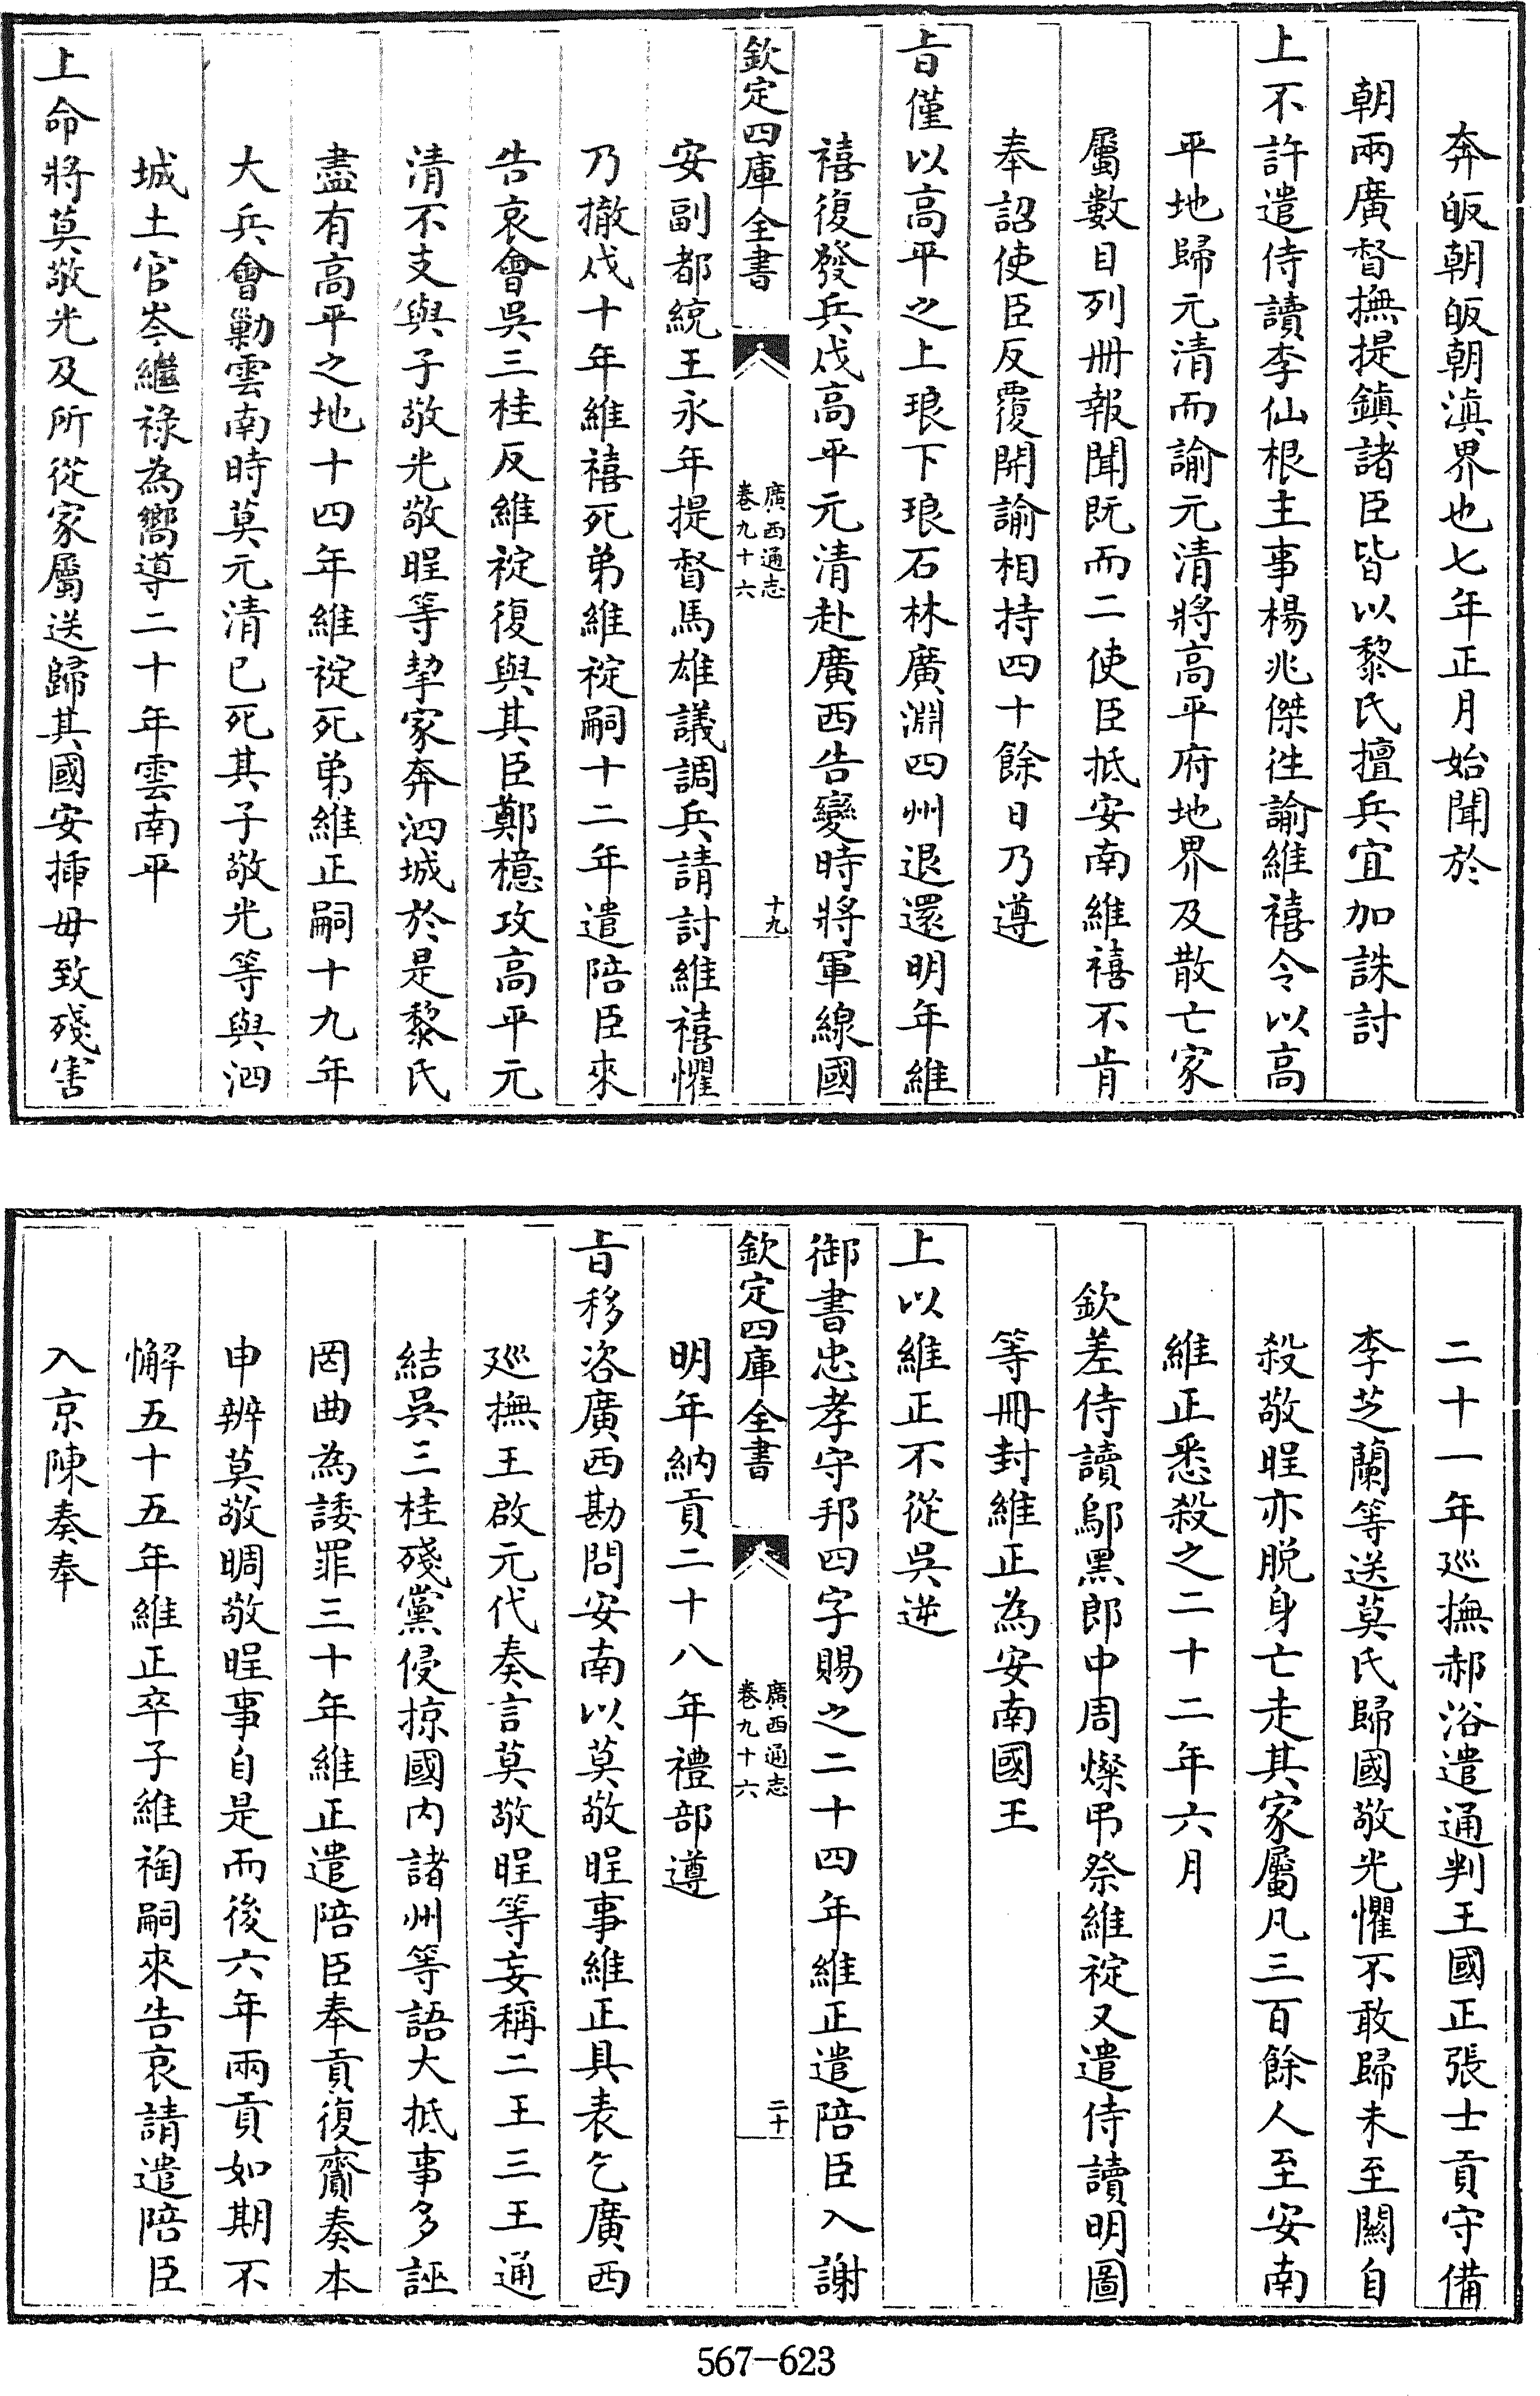 奔皈朝皈朝滇界也七年正月始聞於
朝兩廣督撫提鎮諸臣皆以黎氏擅兵宜加誅討
上不許遣侍讀李仙根主事楊兆傑徃諭維禧令以高
平地歸元清而諭元清將高平府地界及散亡家
屬數目列冊報聞既而二使臣抵安南維禧不肯
奉詔使臣反覆開諭相持四十餘日乃遵
旨僅以高平之上琅下琅石林廣淵四州退還明年維
禧復發兵戍高平元清赴廣西告變時將軍線國
欽定四庫全書
廣西通志
卷九十六
十九
安副都統王永年提督馬雄議調兵請討維禧懼
乃撤戍十年維禧死弟維禎嗣十二年遣陪臣來
告哀會吳三桂反維禎復與其臣鄭檍攻高平元
清不支與子敬光敬㫼等挈家奔泗城於是黎氏
盡有高平之地十四年維禎死弟維正嗣十九年
大兵會勦雲南時莫元清已死其子敬光等與泗
城土官岑繼祿為嚮導二十年雲南平
上命將莫敬光及所從家屬送歸其國安揷毋致殘害
二十一年廵撫郝浴遣通判王國正張士貢守備
李芝蘭等送莫氏歸國敬光懼不敢歸未至關自
殺敬㫼亦脫身亡走其家屬凡三百餘人至安南
維正悉殺之二十二年六月
欽差侍讀鄔黑郎中周燦弔祭維禎又遣侍讀明圖
等冊封維正為安南國王
上以維正不從吳逆
御書忠孝守邦四字賜之二十四年維正遣陪臣入謝
欽定四庫全書
廣西通志
卷九十六
二十
明年納貢二十八年禮部遵
旨移咨廣西勘問安南以莫敬㫼事維正具表乞廣西
廵撫王啟元代奏言莫敬㫼等妄稱二王三王通
結吳三桂殘黨侵掠國内諸州等語大抵事多誣
罔曲為諉罪三十年維正遣陪臣奉貢復齎奏本
申辨莫敬晭敬㫼事自是而後六年兩貢如期不
懈五十五年維正卒子維祹嗣來告哀請遣陪臣
入京陳奏奉
567-623